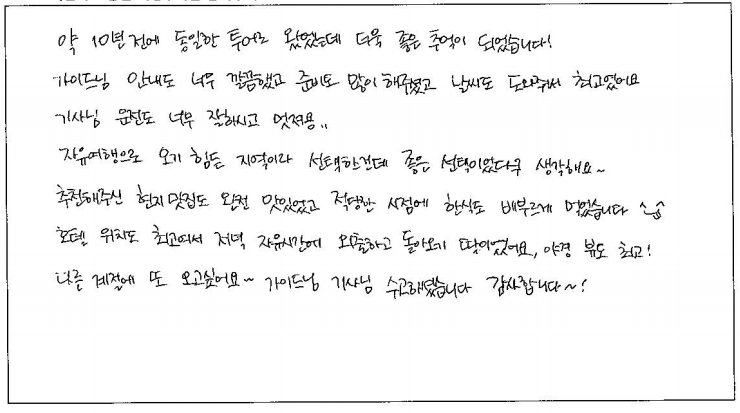 약 10년 전에 동일한 투어로 왔었는데 더욱 좋은 추억이 되었습니다!
가이드님 안내도 너무 깔끔했고 준비도 많이 해주셨고 날씨도 도와줘서 최고였어요
기사님 운전도 너무 잘하시고 멋져용..
자유여행으로 오기 힘든 지역이라 선택한건데 좋은 선택이었다구 생각해요~
추천해주신 현지맛집도 완전 맛있었고 적당한 시점에 한식도 배부르게 먹었습니다 ^^
호텔 위치도 최고여서 저녁 자유시간에 외출하고 돌아오기 딱이었어요, 야경 뷰도 최고!
다른 계절에 또 오고싶어요~ 가이드님 기사님 수고하셨습니다 감사합니다~!